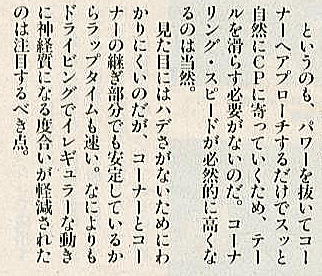 というのも、パワーを抜いてコー
ナーへアプローチするだけでスッと
自然にCPに寄っていくため、テー
ルを滑らす必要がないのだ。コーナ
リング・スピードが必然的に高くな
るのは当然。
　見た目にはハデさがないためにわ
かりにくいのだが、コーナーとコー
ナーの継ぎ部分でも安定しているか
らラップタイムも速い。なによりも
ドライビングでイレギュラーな動き
に神経質になる度合いが軽減された
のは注目するべき点。